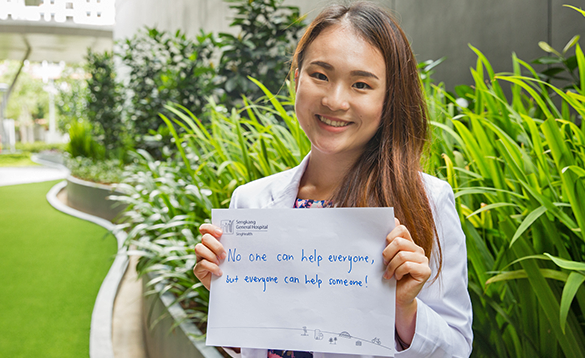 Sengkang
General Hospital
SingHealth
No one can help everyone,
but everyone can help someone!